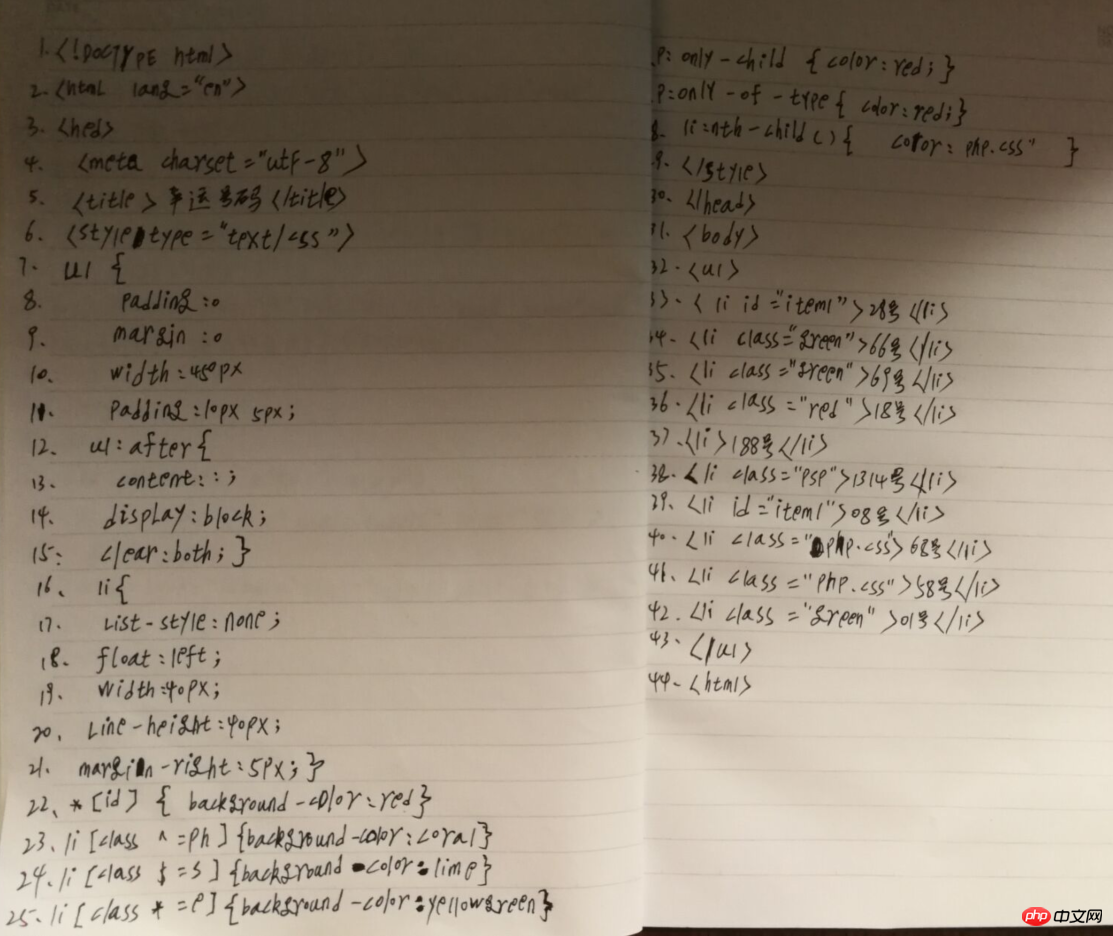 1.<!DOCTYPE html>
2.<html lang="en">
3.<hed>
4. <meta charset="utf-8">
5. <title>幸运号码</title>
6. <style type="text/css">
7. ul {
8. padding:0
9. margin:0
10. width:450px
11. padding:10px 5px;
12. ul:after{
13. content: : ;
14. display:block;
15: clear:both; }
16、 li{
17. List-style:none;
18. float:left;
19. width:40px;
20. Line-height:40px;
21. margin-right:5px; }
22、*[id] { background-color:red}
23. li [class ^ =ph ] {background-color:coral}
24. li [class $ =s ] {background-color:lime}
25. li [class * =e] {background-color:yellowgreen}
p: only-child { color:red; }
p:only-of-type{ color:red;}
8. li:nth-child(){ color: php.css" }
9. </style>
30. </head>
31. <body>
32. <ul>
33. < li id ="item1">28号</li>
34. <li class="green">66号</li>
35. <li class="green">69号</li>
36. <li class="red">18号</li>
37.<li>188号</li>
38. <li class="psp">1314号</li>
39. <li id="item1">08号</li>
40. <li class="php.css">68号</li>
41. <li class="php.css">58号</li>
42. <li class="green">01号</li>
43. </ul>
44. <html>
php 中文网